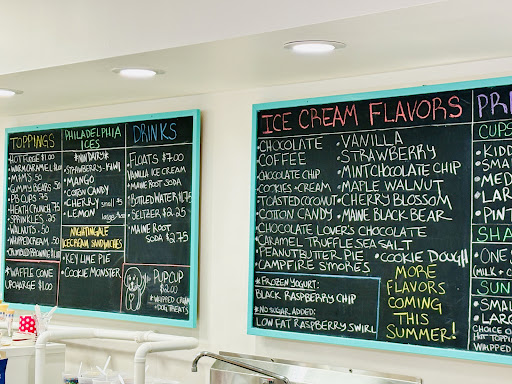 TOPPINGS
HOT FUDGE $1.00
WARM CARAMEL
M&M'S .50
GUMMY BEARS .50
PB CUPS .75
HEATH CRUNCH
SPRINKLES .25
WALNUTS .50
WHIPPED CREAM
CRUMBLED BROWNIE
*WAFFLE CONE
UPCHARGE
PHILADELPHIA
ICES
*NON DAIRY*
STRAWBERRY-KIWI
MANGO
COTTON CANDY
CHERRY
LEMON
NIGHTINGALE
ICE CREAM SANDWICHES
KEY LIME PIE
COOKIE MONSTER
DRINKS
FLOATS $7.00
VANILLA ICE CREAM
MAINE ROOT SODA
BOTTLED WATER
SELTZER
MAINE ROOT
SODA $2.75
PUPCUP
$2.00
*WHIPPED CREAM
DOG TREATS
ICE CREAM FLAVORS
CHOCOLATE
COFFEE
CHOCOLATE CHIP
COOKIES & CREAM
TOASTED COCONUT
COTTON CANDY
CHOCOLATE LOVER'S CHOCOLATE
CARAMEL TRUFFLE SEA SALT
PEANUT BUTTER PIE
CAMPFIRE SMORES
VANILLA
STRAWBERRY
MINT CHOCOLATE CHIP
MAPLE WALNUT
CHERRY BLOSSOM
MAINE BLACK BEAR
COOKIE DOUGH
*FROZEN YOGURT:
BLACK RASPBERRY CHIP
*NO SUGAR ADDED:
LOW FAT RASPBERRY SWIRL
MORE
FLAVORS
COMING
THIS
SUMMER!
PRI
CUPS
KIDD
SMAL
MED
LARG
PINT
SHA
ONE S
(MILK +
SUN
SMALL
LARG
CHOICE O
HOT TOPPI
WHIPPED